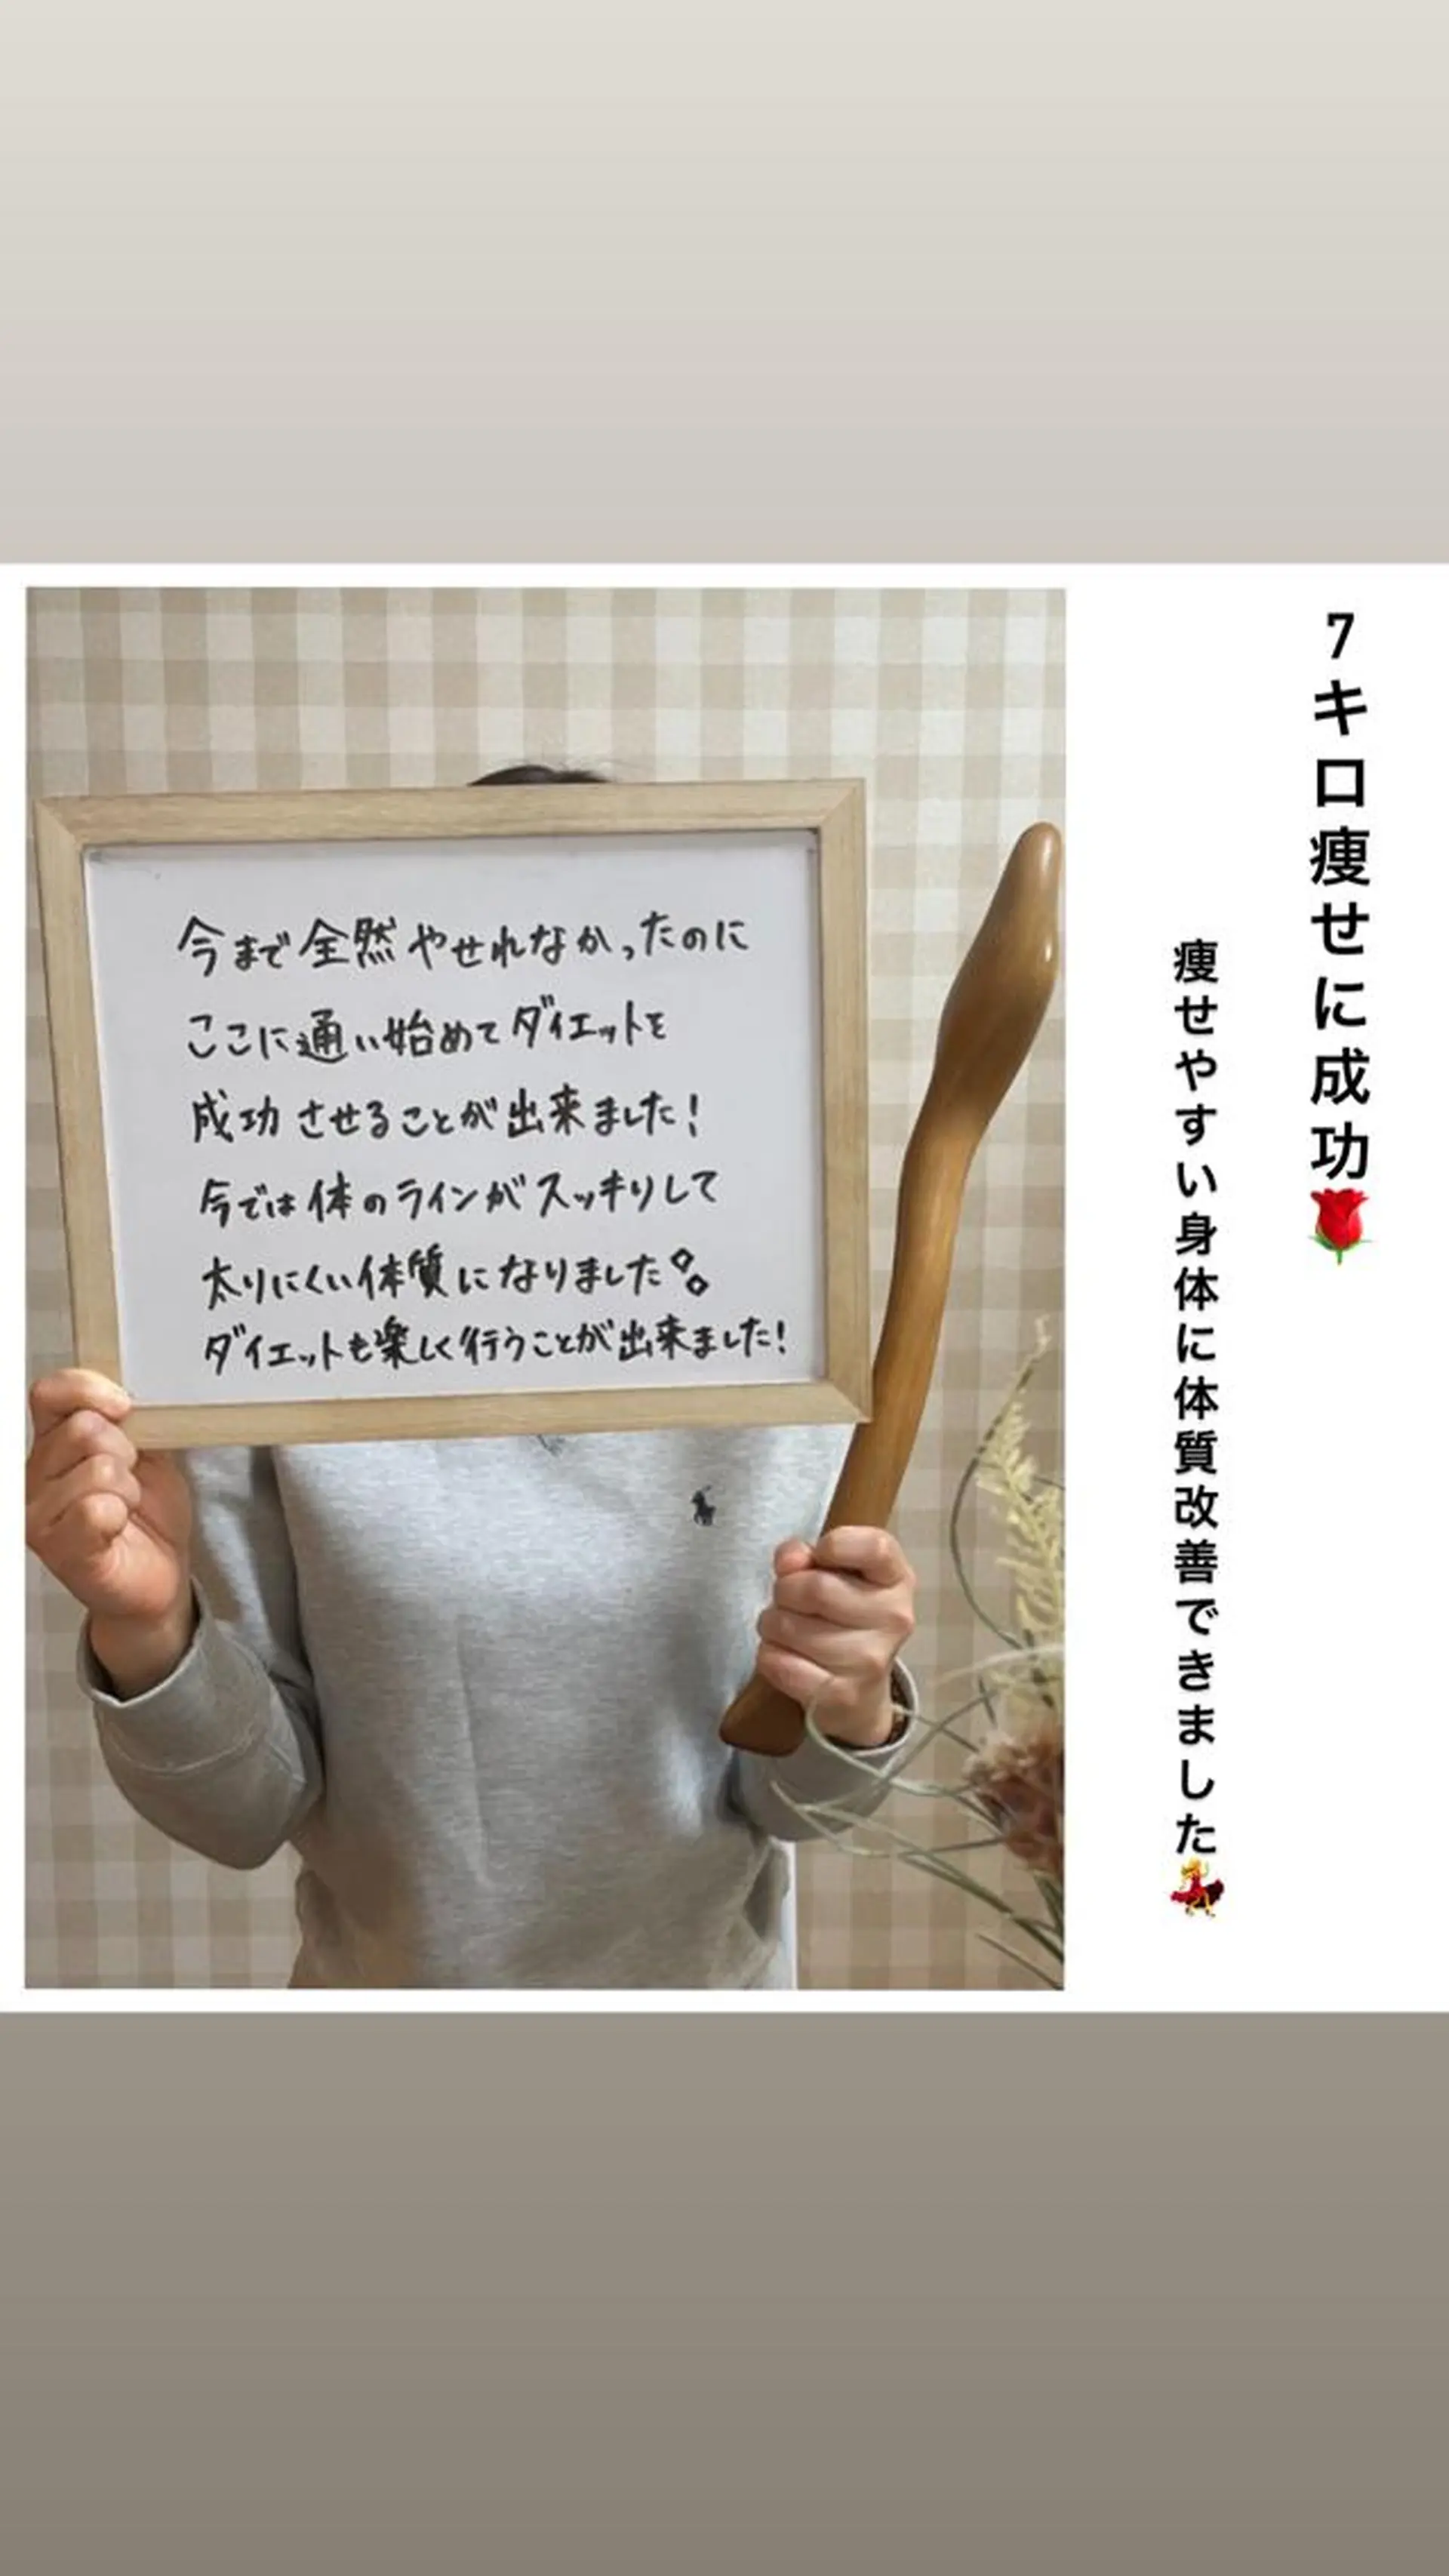 7キロ痩せに成功🌹
痩せやすい身体に体質改善できました💃
今まで全然やせれなかったのに
ここに通い始めてダイエットを
成功させることが出来ました!
今では体のラインがスッキりして
太りにくい体質になりました
ダイエットも楽しく行うことが出来ました!